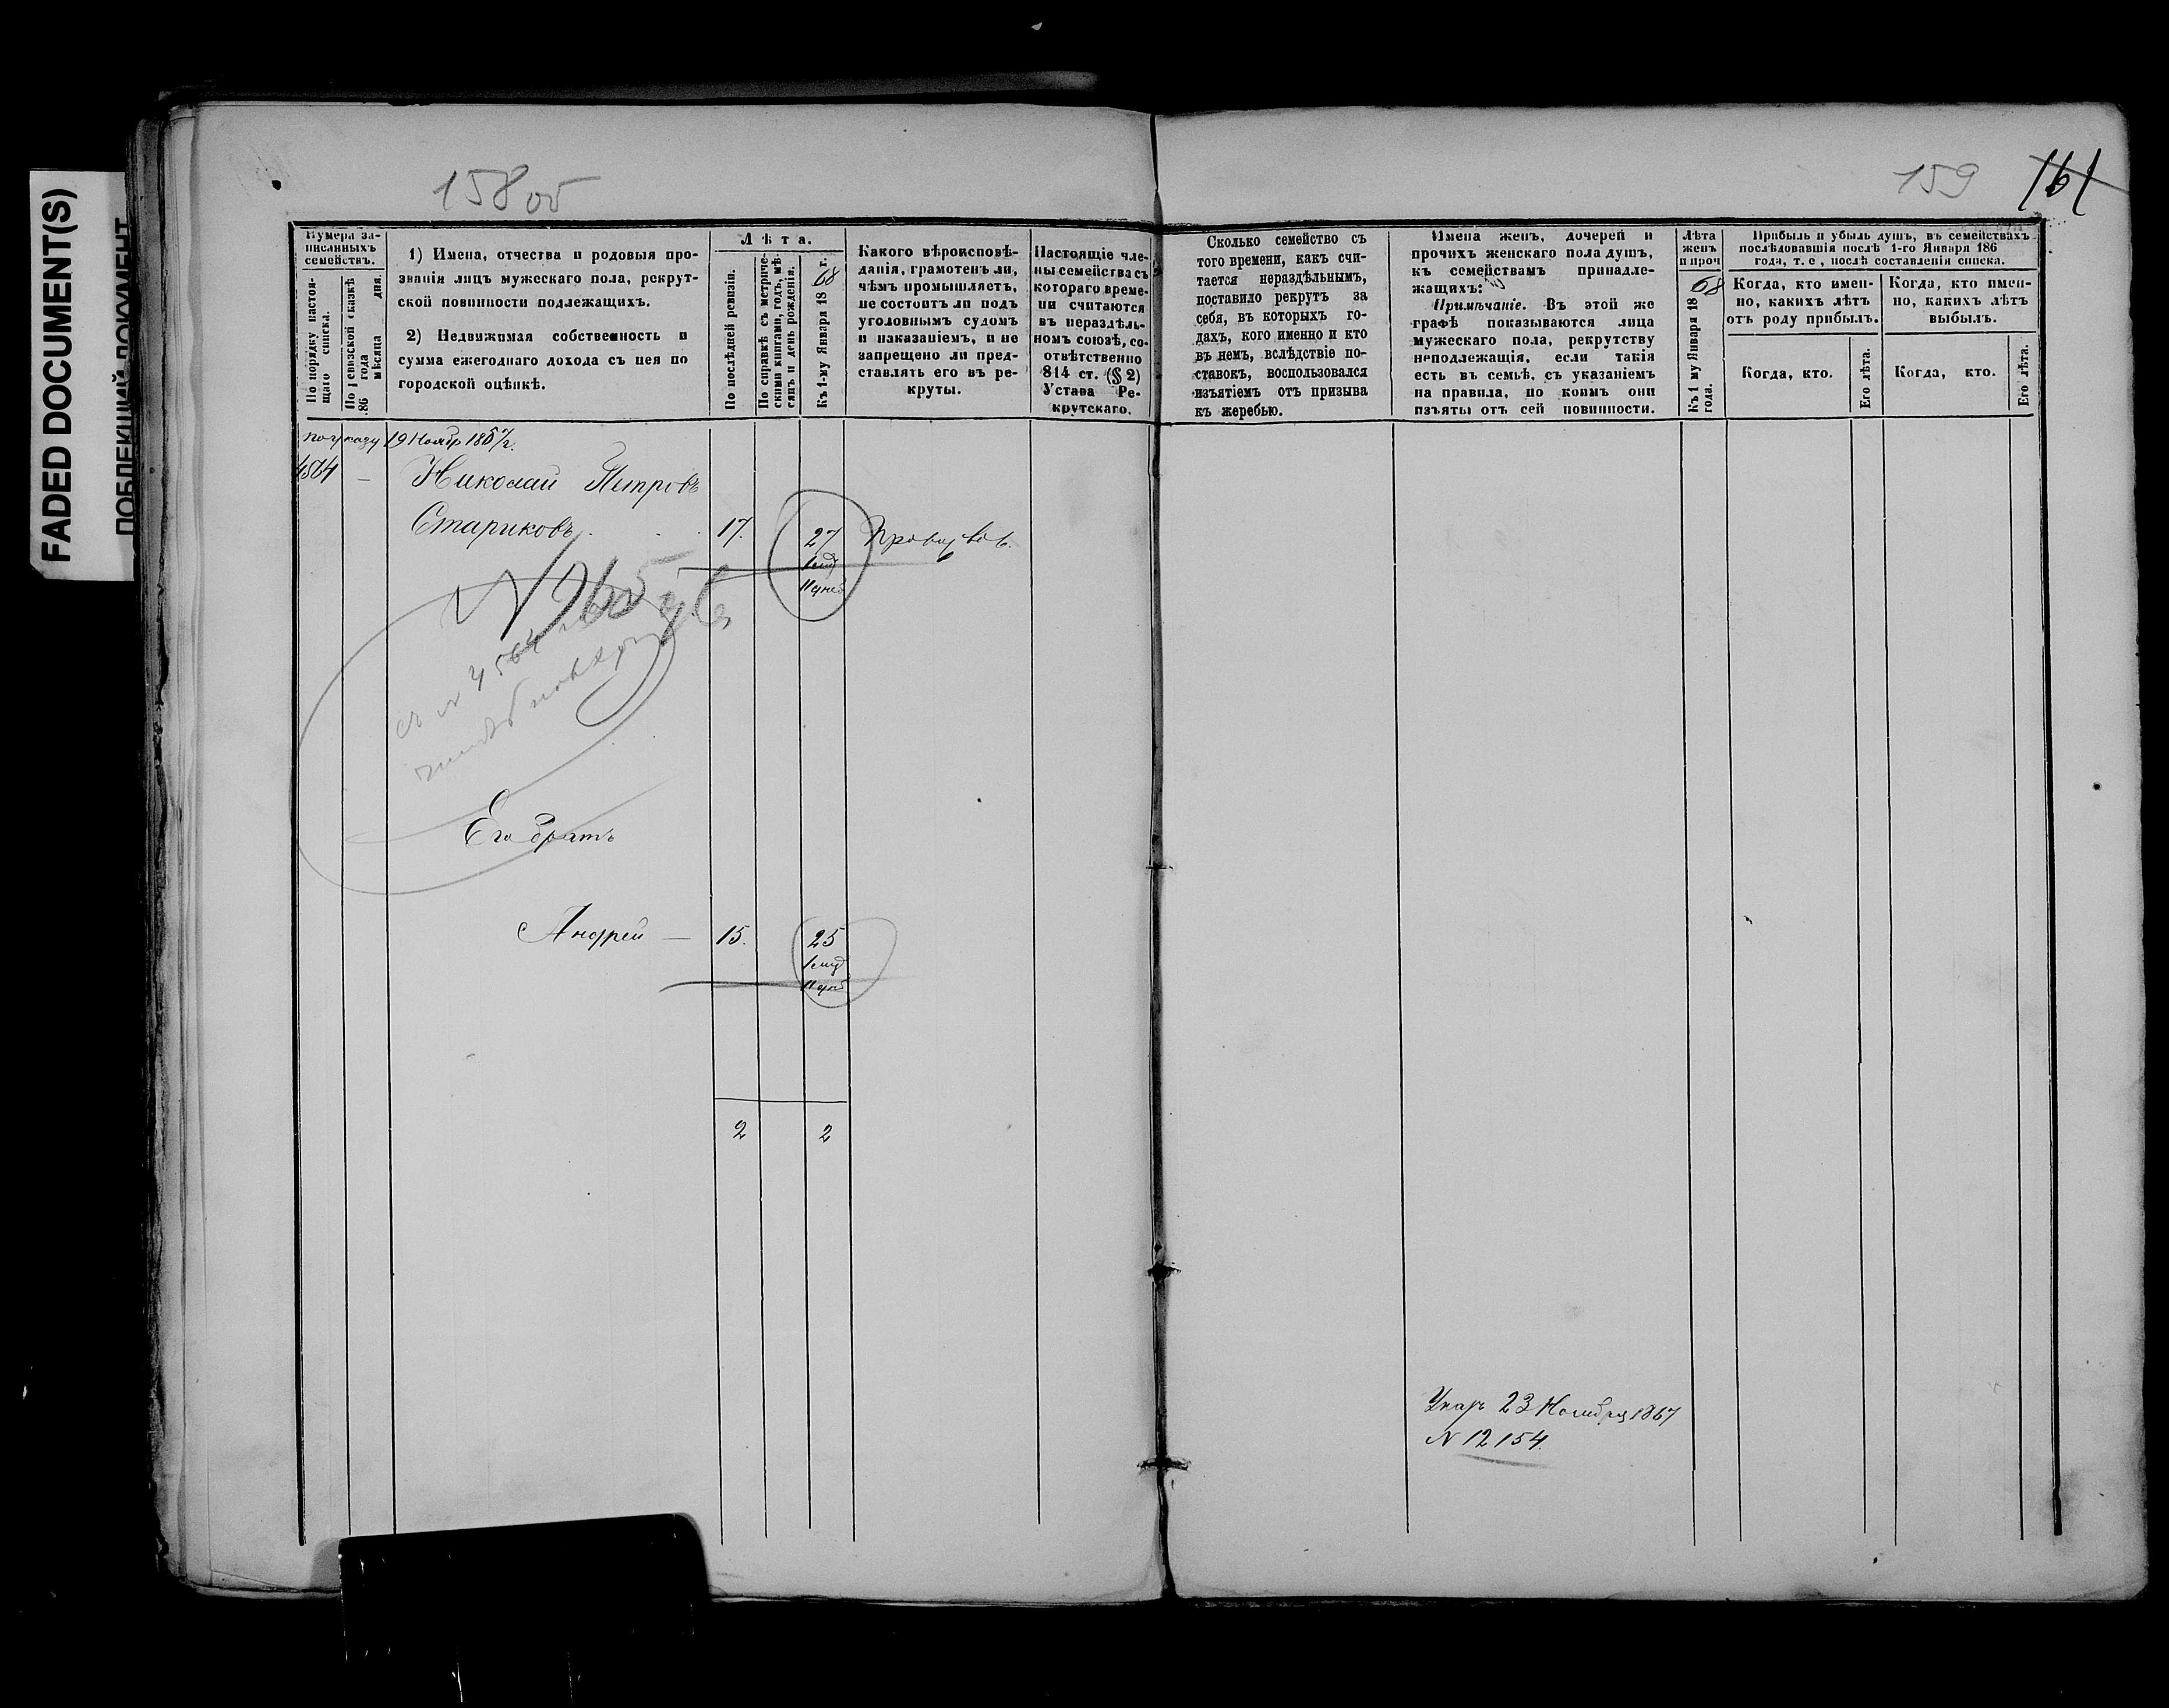 FADED DOCUMENT(S)
158 об
159
161
Нумера за-
писанныхъ
семействъ.
По порядку настоя-
щаго списка.
По ревизской сказкѣ
186 года
мѣсяца дня.
1) Имена, отчества и родовыя про-
званія лицъ мужескаго пола, рекрут-
ской повинности подлежащихъ.
2) Недвижимая собственность и
сумма ежегоднаго дохода съ нея по
городской оцѣнкѣ.
Лѣта.
По послѣдней ревизіи.
По справкѣ съ метриче-
скими книгами, годъ, мѣ-
сяцъ и день рожденія.
Къ 1-му Января 1868 г.
Какого вѣроисповѣ-
данія, грамотенъ ли,
чѣмъ промышляетъ,
не состоитъ ли подъ
уголовнымъ судомъ
и наказаніемъ, и не
запрещено ли пред-
ставлять его въ ре-
круты.
Настоящіе чле-
ны семейства съ
котораго време-
ни считаются
въ нераздѣль-
номъ союзѣ, со-
отвѣтственно
814 ст. (§ 2)
Устава Ре-
крутскаго.
Сколько семейство съ
того времени, какъ счи-
тается нераздѣльнымъ,
поставило рекрутъ за
себя, въ которыхъ го-
дахъ, кого именно и кто
въ немъ, вслѣдствіе по-
ставокъ, воспользовался
изъятіемъ отъ призыва
къ жеребью.
Имена женъ, дочерей и
прочихъ женскаго пола душъ,
къ семействамъ принадле-
жащихъ:
Примѣчаніе. Въ этой же
графѣ показываются лица
мужескаго пола, рекрутству
неподлежащія, если такія
есть въ семьѣ, съ указаніемъ
на правила, по коимъ они
изъяты отъ сей повинности.
Лѣта
женъ
и проч
Къ 1 му Января 1868
года.
Прибыль и убыль душъ, въ семействахъ
послѣдовавшія послѣ 1-го Января 186
года, т. е , послѣ составленія списка.
Когда, кто имен-
но, какихъ лѣтъ
отъ роду прибылъ.
Когда, кто имен-
но, какихъ лѣтъ
выбылъ.
Когда, кто.
Его лѣта.
Когда, кто.
Его лѣта.
по указу 19 Ноябр 1857 г.
4564 —
Николай Петровъ
Стариковъ. 17. 27
11 дней
Его братъ
Андрей — 15. 25
11 дней
2 2
Указъ 23 Ноября 1867
N 12154.